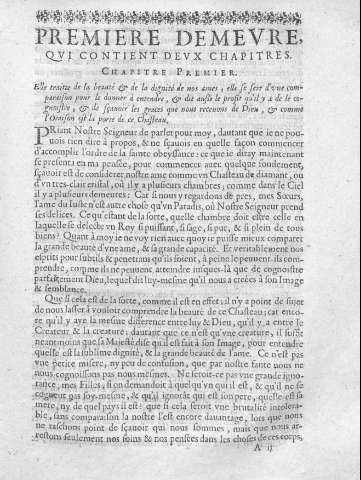 PREMIERE DEMEVRE,
QVI CONTIENT DEVX CHAPITRES.
CHAPITRE PREMIER.
Elle traitte de la beauté & de la dignité de nos ames, elle se sert d'vne com-
paraison pour le donner à entendre, & dit aussi le profit qu'il y a de le co-
gnoistre, & de sçauoir les graces que nous receuons de Dieu, & comme
l'Oraison est la porte de ce Chasteau.
PRiant Nostre Seigneur de parler pour moy, dautant que ie ne pou-
uois rien dire à propos, & ne sçauois en quelle façon commencer
d'accomplir l'ordre de la sainte obeyssance: ce que ie diray maintenant
se presenta en ma pensée, pour commencer auec quelque fondement,
sçauoir est de considerer nostre ame comme vn Chasteau de diamant, ou
d'vn tres-clair cristal, où il y a plusieurs chambres, comme dans le Ciel
il y a plusieurs demeures: Car si nous y regardons de pres, mes Sœurs,
l'ame du Iuste n'est autre chose qu'vn Paradis, où Nostre Seigneur prend
ses delices. Ce qu'estant de la sorte, quelle chambre doit estre celle en
laquelle se delecte vn Roy si puissant, si sage, si pur, & si plein de tous
biens? Quant à moy ie ne voy rien auec quoy ie puisse mieux comparer
la grande beauté d'vne ame, & sa grande capacité. Et veritablement nos
esprits pour subtils & penetrans qu'ils soient, à peine le peuuent-ils com-
prendre, comme ils ne peuuent atteindre iusques-là que de cognoistre
parfaitement Dieu, lequel dit luy-mesme qu'il nous a creées à son Image
& semblance.
Que si cela est de la sorte, comme il est en effet: il n'y a point de sujet
de nous lasser à vouloir comprendre la beauté de ce Chasteau; car enco-
re qu'il y aye la mesme difference entre luy & Dieu, qu'il y a entre le
Createur & la creature: dautant que ce n'est qu'vne creature, il suffit
neantmoins que sa Majesté dise qu'il est fait à son Image, pour entendre
quelle est la sublime dignité, & la grande beauté de l'ame. Ce n'est pas
vne petite misere, ny peu de confusion, que par nostre faute nous ne
nous cognoissions pas nous-mesmes. Ne seroit-ce pas vne grande igno-
rance, mes Filles, si on demandoit à quelqu'vn qui il est, & qu'il ne se
cogneut pas soy-mesme, & qu'il ignorât qui est son pere, quelle est sa
mere, ny de quel pays il est: que si cela seroit vne brutalité intolera-
ble, sans comparaison la nostre l'est encore dauantage, lors que nous
ne taschons point de sçauoir qui nous sommes, mais que nous ar-
restons seulement nos soins & nos pensées dans les choses de ces corps,
A ij